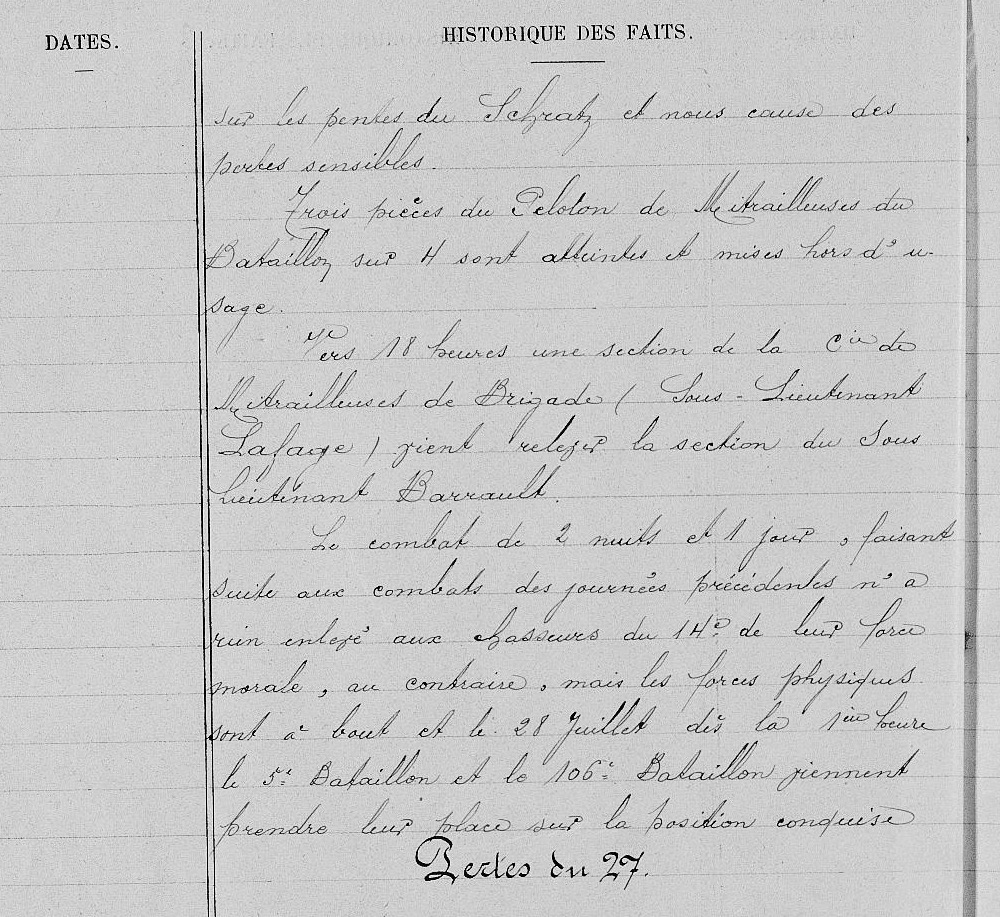 DATES.
HISTORIQUE DES FAITS.
sur les pentes du Schratz et nous cause des
pertes sensibles.
Trois pièces du Peloton de Mitrailleuses du
Bataillon sur 4 sont atteintes et mises hors d'u-
sage.
Vers 18 heures une section de la Cie de
Mitrailleuses de Brigade (Sous-Lieutenant
Lafage) vient relever la section du Sous
Lieutenant Barrault.
Le combat de 2 nuits et 1 jour, faisant
suite aux combats des journées précédentes n'a
rien enlevé aux chasseurs du 14e de leur force
morale, au contraire, mais les forces physiques
sont à bout et le 28 Juillet dès la 1ère heure
le 5e Bataillon et le 106e Bataillon viennent
prendre leur place sur la position conquise
Pertes du 27.